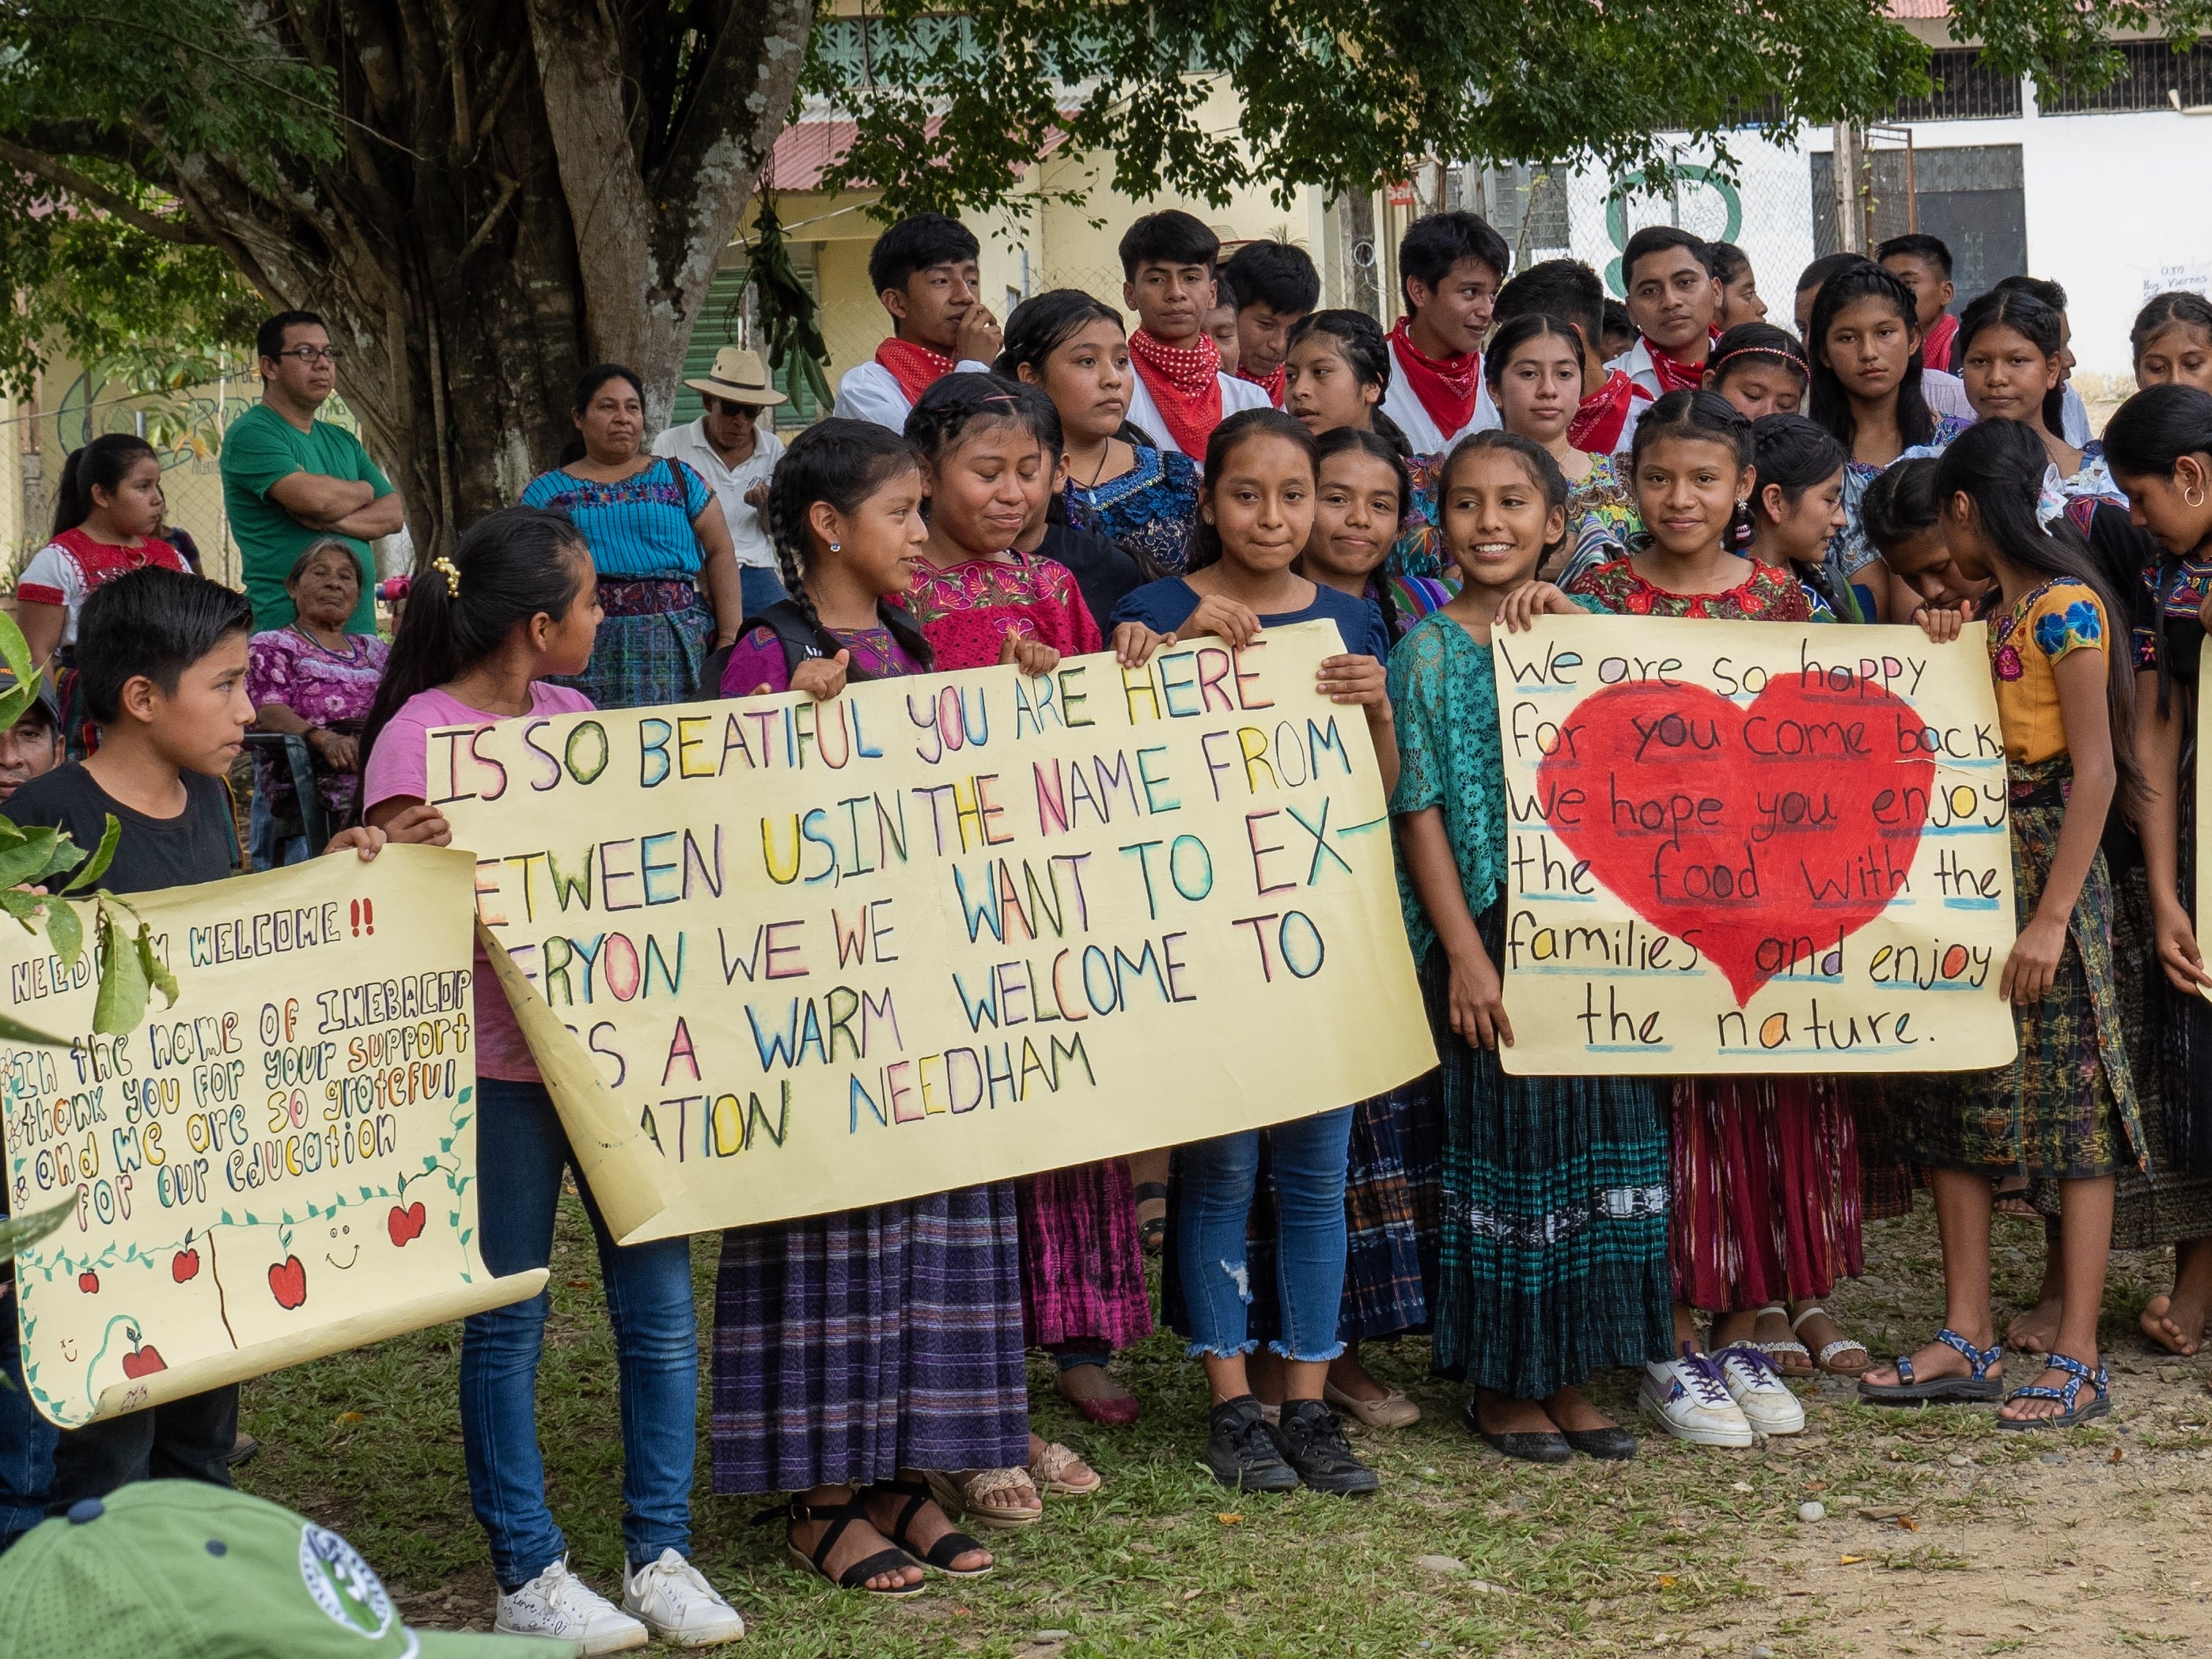 WELCOME!!
In the name of INEBACOP
thank you for your support
and we are so grateful
for our education
IS SO BEATIFUL YOU ARE HERE
ETWEEN US, IN THE NAME FROM
ERYON WE WE WANT TO EX-
S A WARM WELCOME TO
ATION NEEDHAM
We are so happy
for you come back,
We hope you enjoy
the food with the
families and enjoy
the nature.
OJO
Hoy Viernes